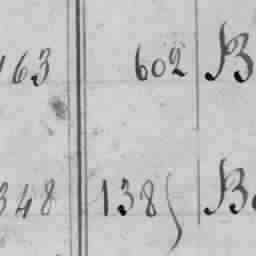 163 602 B
348 1385 B